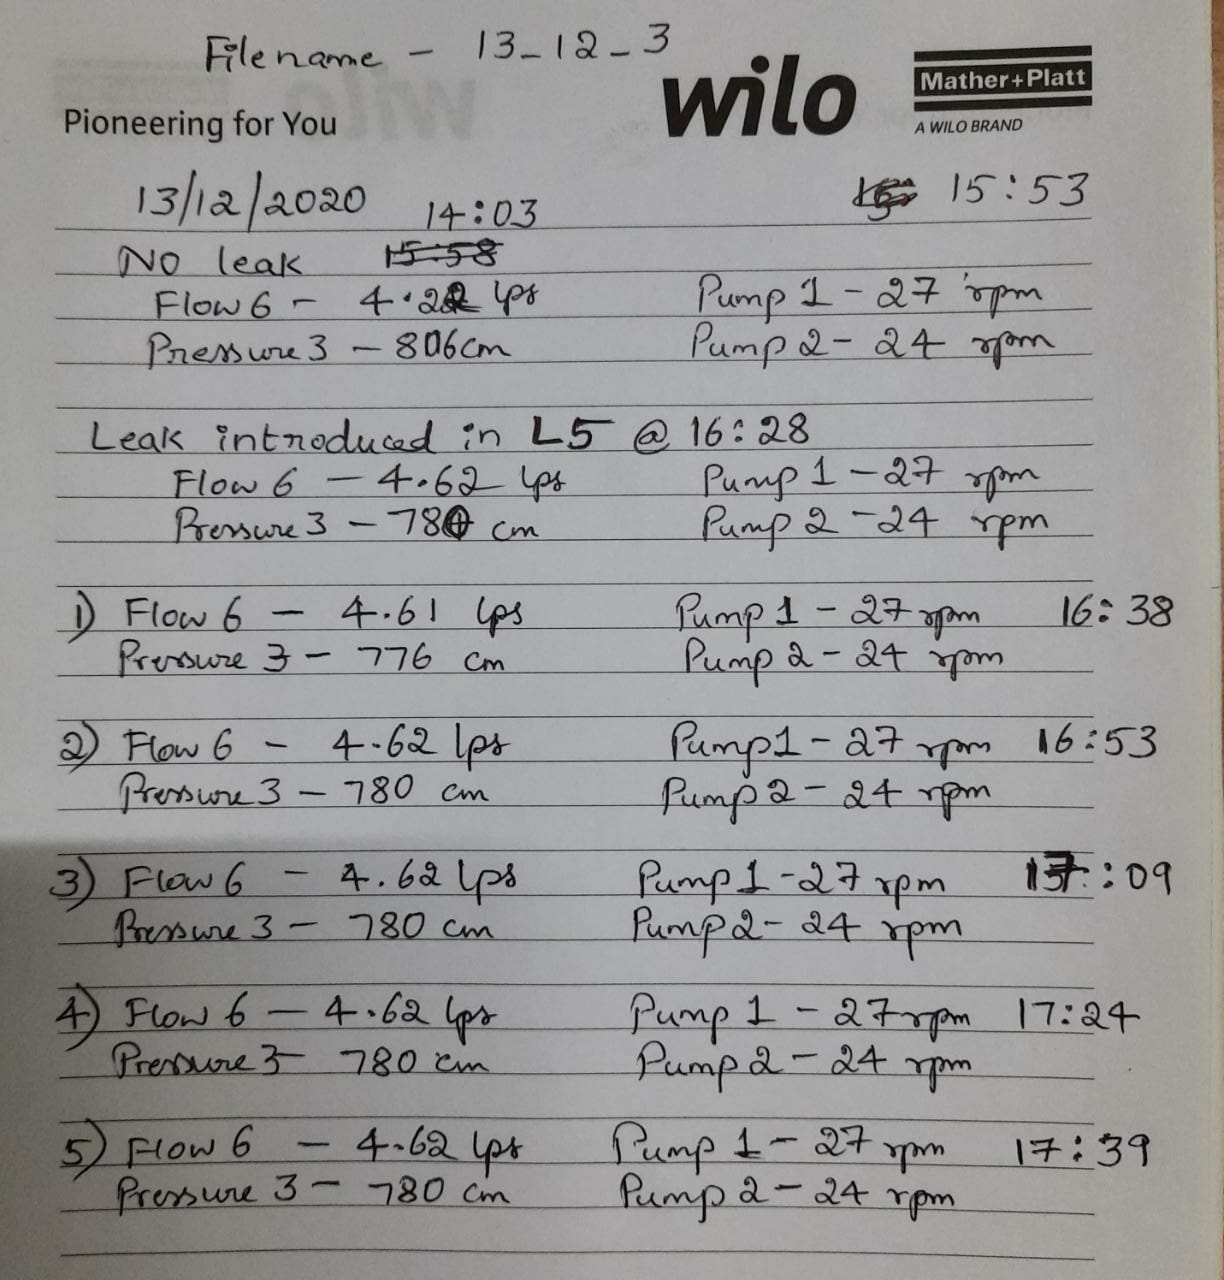 Filename - 13_12_3
Pioneering for You
wilo
Mather+Platt
A WILO BRAND
13/12/2020 14:03 15:53
No leak 15:58
Flow 6 - 4.22 lps Pump 1 - 27 rpm
Pressure 3 - 806cm Pump 2 - 24 rpm
Leak introduced in L5 @ 16:28
Flow 6 - 4.62 lps Pump 1 - 27 rpm
Pressure 3 - 780 cm Pump 2 - 24 rpm
1) Flow 6 - 4.61 lps Pump 1 - 27 rpm 16:38
Pressure 3 - 776 cm Pump 2 - 24 rpm
2) Flow 6 - 4.62 lps Pump 1 - 27 rpm 16:53
Pressure 3 - 780 cm Pump 2 - 24 rpm
3) Flow 6 - 4.62 lps Pump 1 - 27 rpm 17:09
Pressure 3 - 780 cm Pump 2 - 24 rpm
4) Flow 6 - 4.62 lps Pump 1 - 27 rpm 17:24
Pressure 3 - 780 cm Pump 2 - 24 rpm
5) Flow 6 - 4.62 lps Pump 1 - 27 rpm 17:39
Pressure 3 - 780 cm Pump 2 - 24 rpm